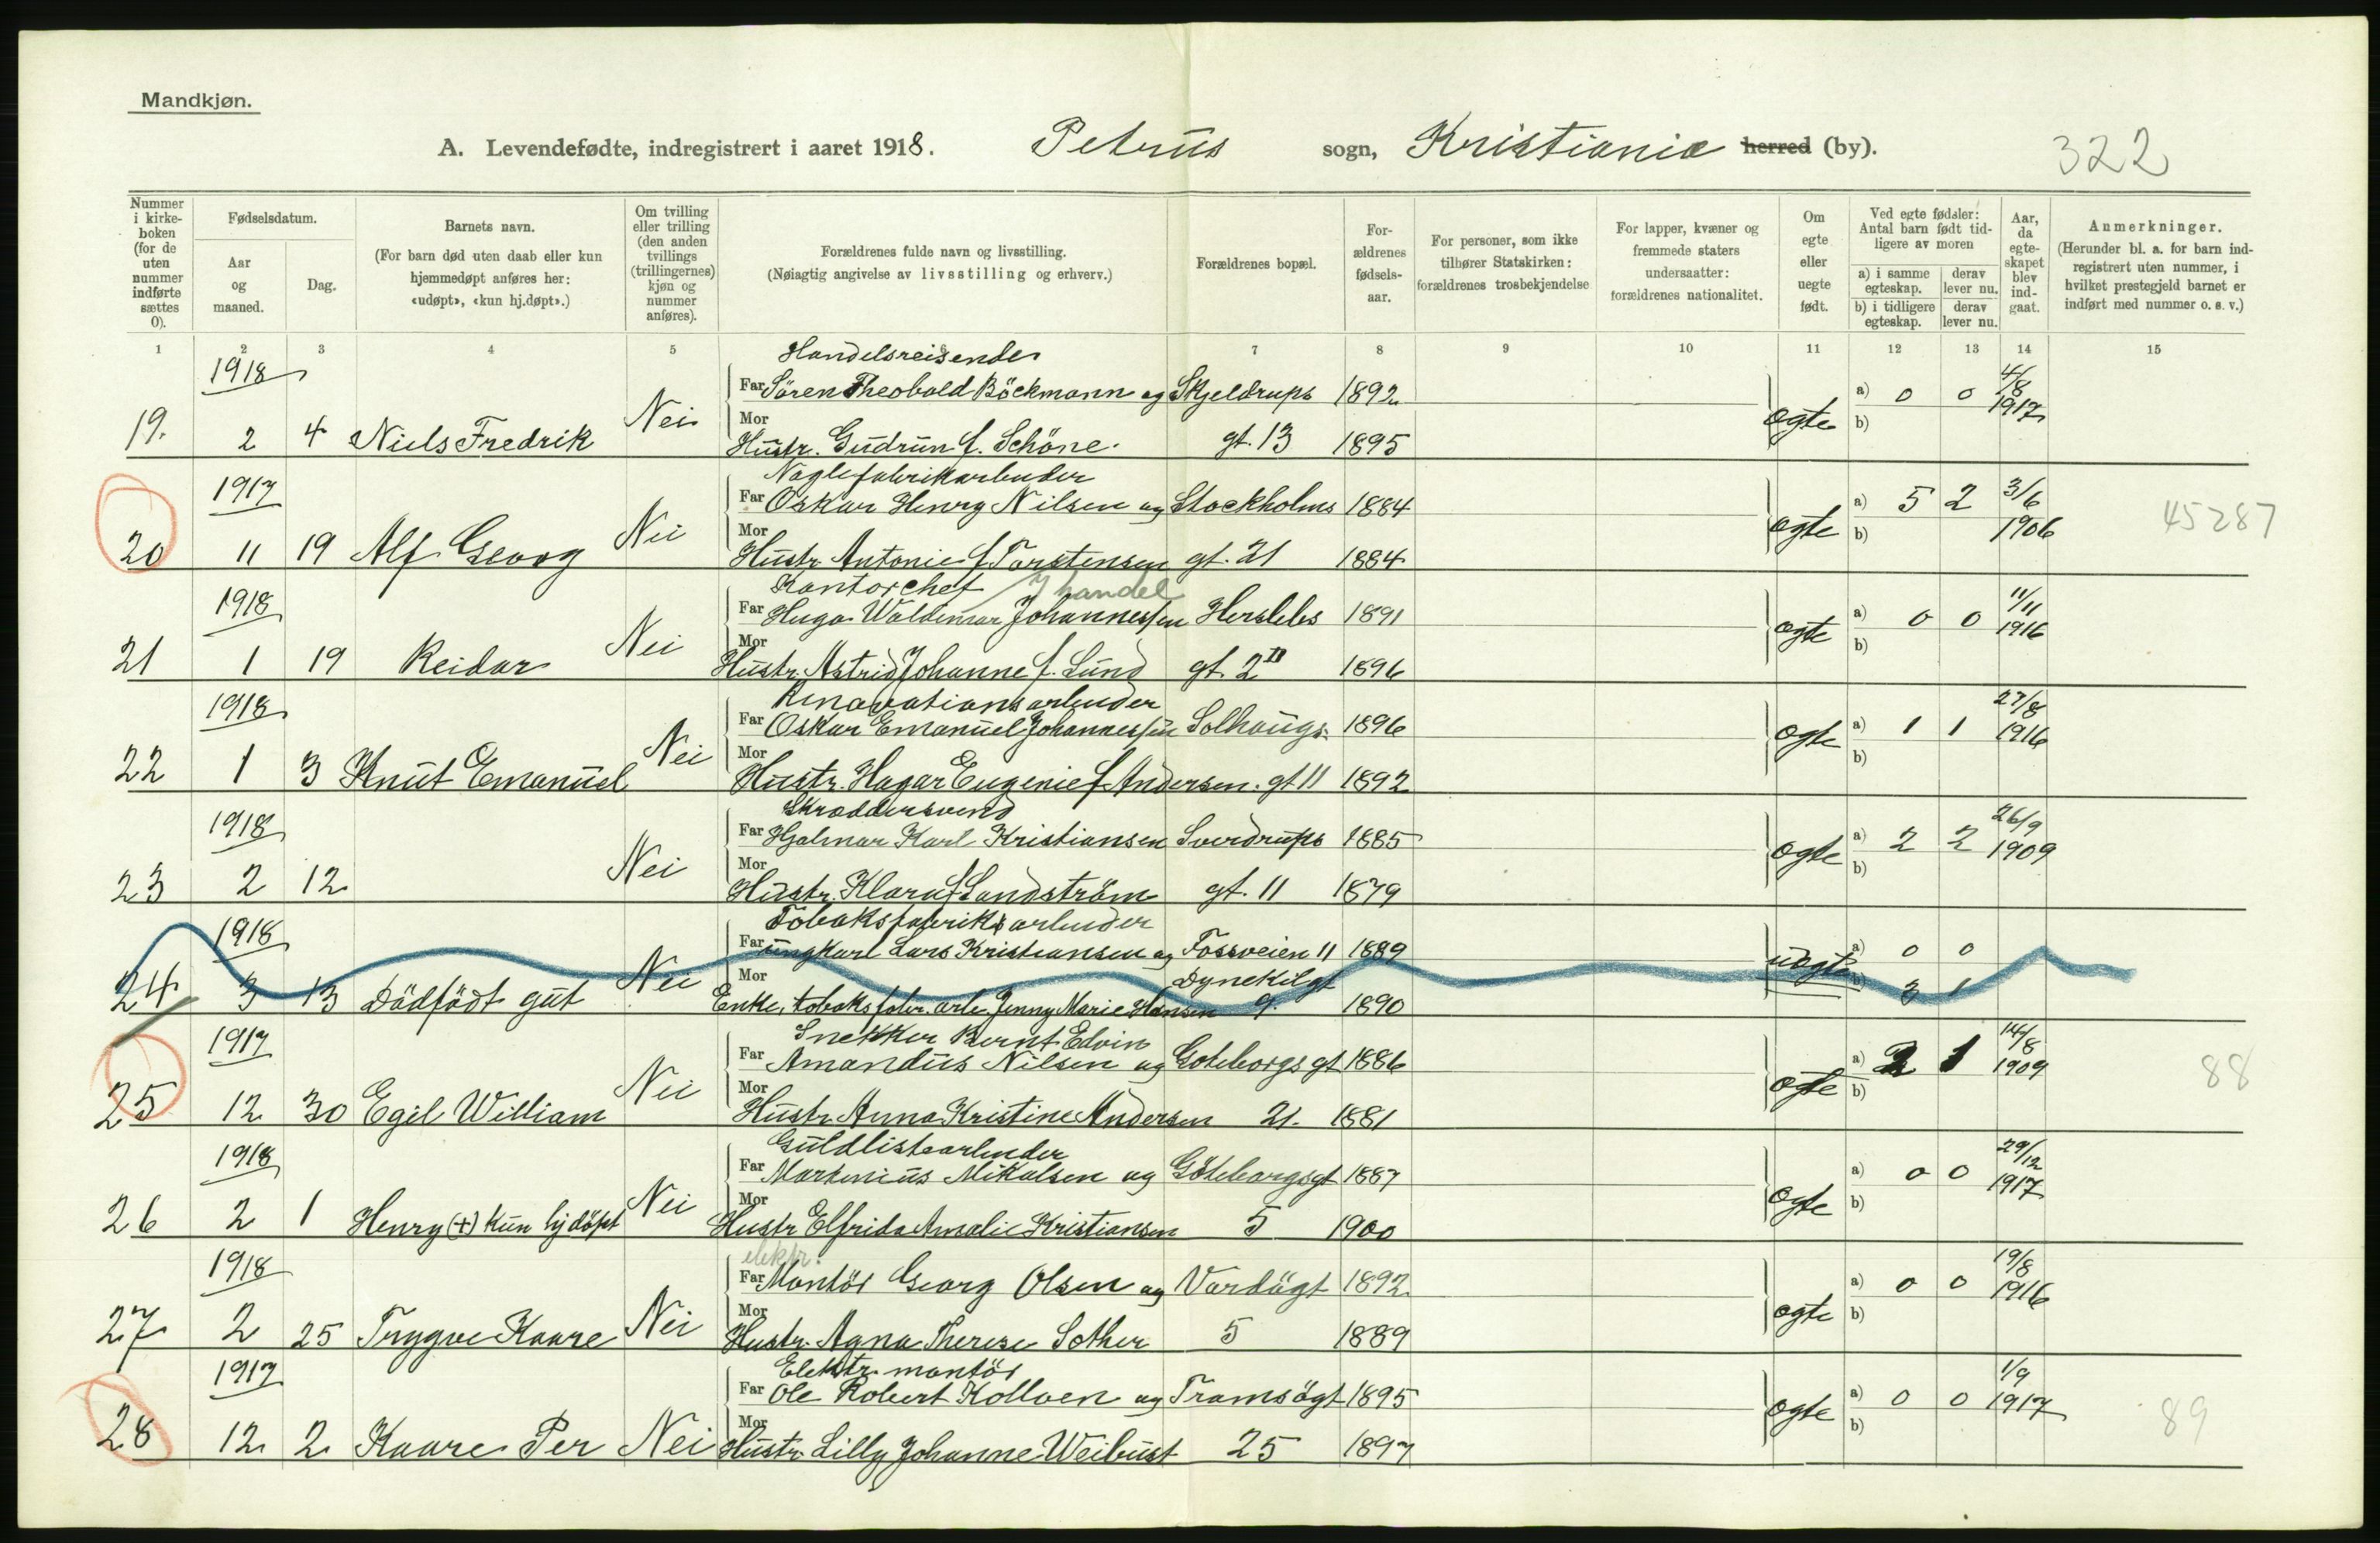 Mandkjøn.
A. Levendefødte, indregistrert i aaret 1918. Petrus sogn, Kristiania herred (by). 322
Nummer i kirke-boken (for de uten nummer indførte sættes 0).
Fødselsdatum.
Aar og maaned.
Dag.
Barnets navn.
(For barn død uten daab eller kun hjemmedøpt anføres her: «udøpt», «kun hj.døpt».)
Om tvilling eller trilling (den anden tvillings (trillingernes) kjøn og nummer anføres).
Forældrenes fulde navn og livsstilling.
(Nøiagtig angivelse av livsstilling og erhverv.)
Forældrenes bopæl.
For-ældrenes fødsels-aar.
For personer, som ikke tilhører Statskirken: forældrenes trosbekjendelse
For lapper, kvæner og fremmede staters undersaatter: forældrenes nationalitet.
Om egte eller uegte født.
Ved egte fødsler: Antal barn født tid-ligere av moren
a) i samme egteskap. derav lever nu.
b) i tidligere egteskap. derav lever nu.
Aar, da egte-skapet blev ind-gaat.
Anmerkninger.
(Herunder bl. a. for barn ind-registrert uten nummer, i hvilket prestegjeld barnet er indført med nummer o. s. v.)
1 2 3 4 5 6 7 8 9 10 11 12 13 14 15
1918 Handelsreisende
Far Sören Theobald Böckmann og Skjeldrups 1892 a) 0 0 4/8 1917
19. 2 4 Niels Fredrik Nei Mor Hustr. Gudrun f. Schöne. gt. 13 1895 egte b)
1917 Naglefabrikarbeider
Far Oskar Henry Nilsen og Stockholms 1884 a) 5 2 3/6 1906 45287
20 11 19 Alf Georg Nei Mor Hustr Antonie f Torstensen gt. 21 1884 egte b)
1918 Kontorchef I handel
Far Hugo Waldemar Johannessen Herslebs 1891 a) 0 0 11/11 1916
21 1 19 Reidar Nei Mor Hustr. Astrid Johanne f. Lund gt. 2 II 1896 egte b)
1918 Renovationsarbeider
Far Oskar Emanuel Johannessen Solhaugs- 1896 a) 1 1 27/8 1916
22 1 3 Knut Emanuel Nei Mor Hustr. Hagar Eugenie f Andersen. gt 11 1892 egte b)
1918 Skræddersvend
Far Hjalmar Karl Kristiansen Sverdrups 1885 a) 2 2 26/9 1909
23 2 12 Nei Mor Hustr. Klara f Landström gt. 11 1879 egte b)
1918 Tobaksfabrikarbeider
Far ungkarl Lars Kristiansen og Fossveien 11 1889 a) 0 0
24 3 13 Dödfödt gut Nei Mor Enke, tobaksfabr. arb. Jenny Marie Hansen Dynekilgt 9. 1890 uegte b) 3 1
1917 Snekker Bernt Edvin
Far Amandus Nilsen og Goteborgs gt 1886 a) 2 1 14/8 1909 88
25 12 30 Egil William Nei Mor Hustr. Anna Kristine Andersen 21. 1881 egte b)
1918 Guldlistearbeider
Far Martinius Mikalsen og Göteborgsgt 1887 a) 0 0 29/12 1917
26 2 1 Henry (+) kun hjdöpt Nei Mor Hustr Elfrida Amalie Kristiansen 5 1900 egte b)
1918 elektr.
Far Montör Georg Olsen og Vardögt 1892 a) 0 0 19/8 1916
27 2 25 Trygve Kaare Nei Mor Hustr. Agna Therese Sother 5 1889 egte b)
1917 Elektr. montör
Far Ole Robert Kolloen og Tromsögt 1895 a) 0 0 1/9 1917 89
28 12 2 Kaare Per Nei Mor Hustr. Lilly Johanne Weibust 25 1897 egte b)